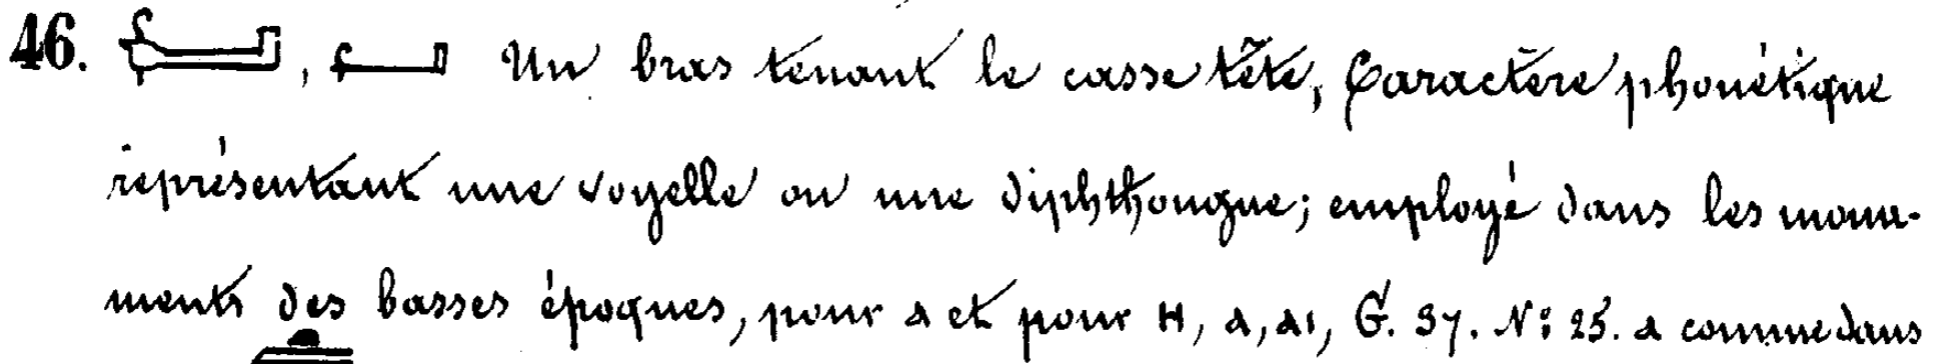 46. , Un bras tenant le casse tête, Caractère phonétique
représentant une voyelle ou une diphthongue; employé dans les monu-
ments des basses époques, pour ⲁ et pour ⲏ, ⲁ, ⲁⲓ, G. 37. N° 25. ⲁ comme dans